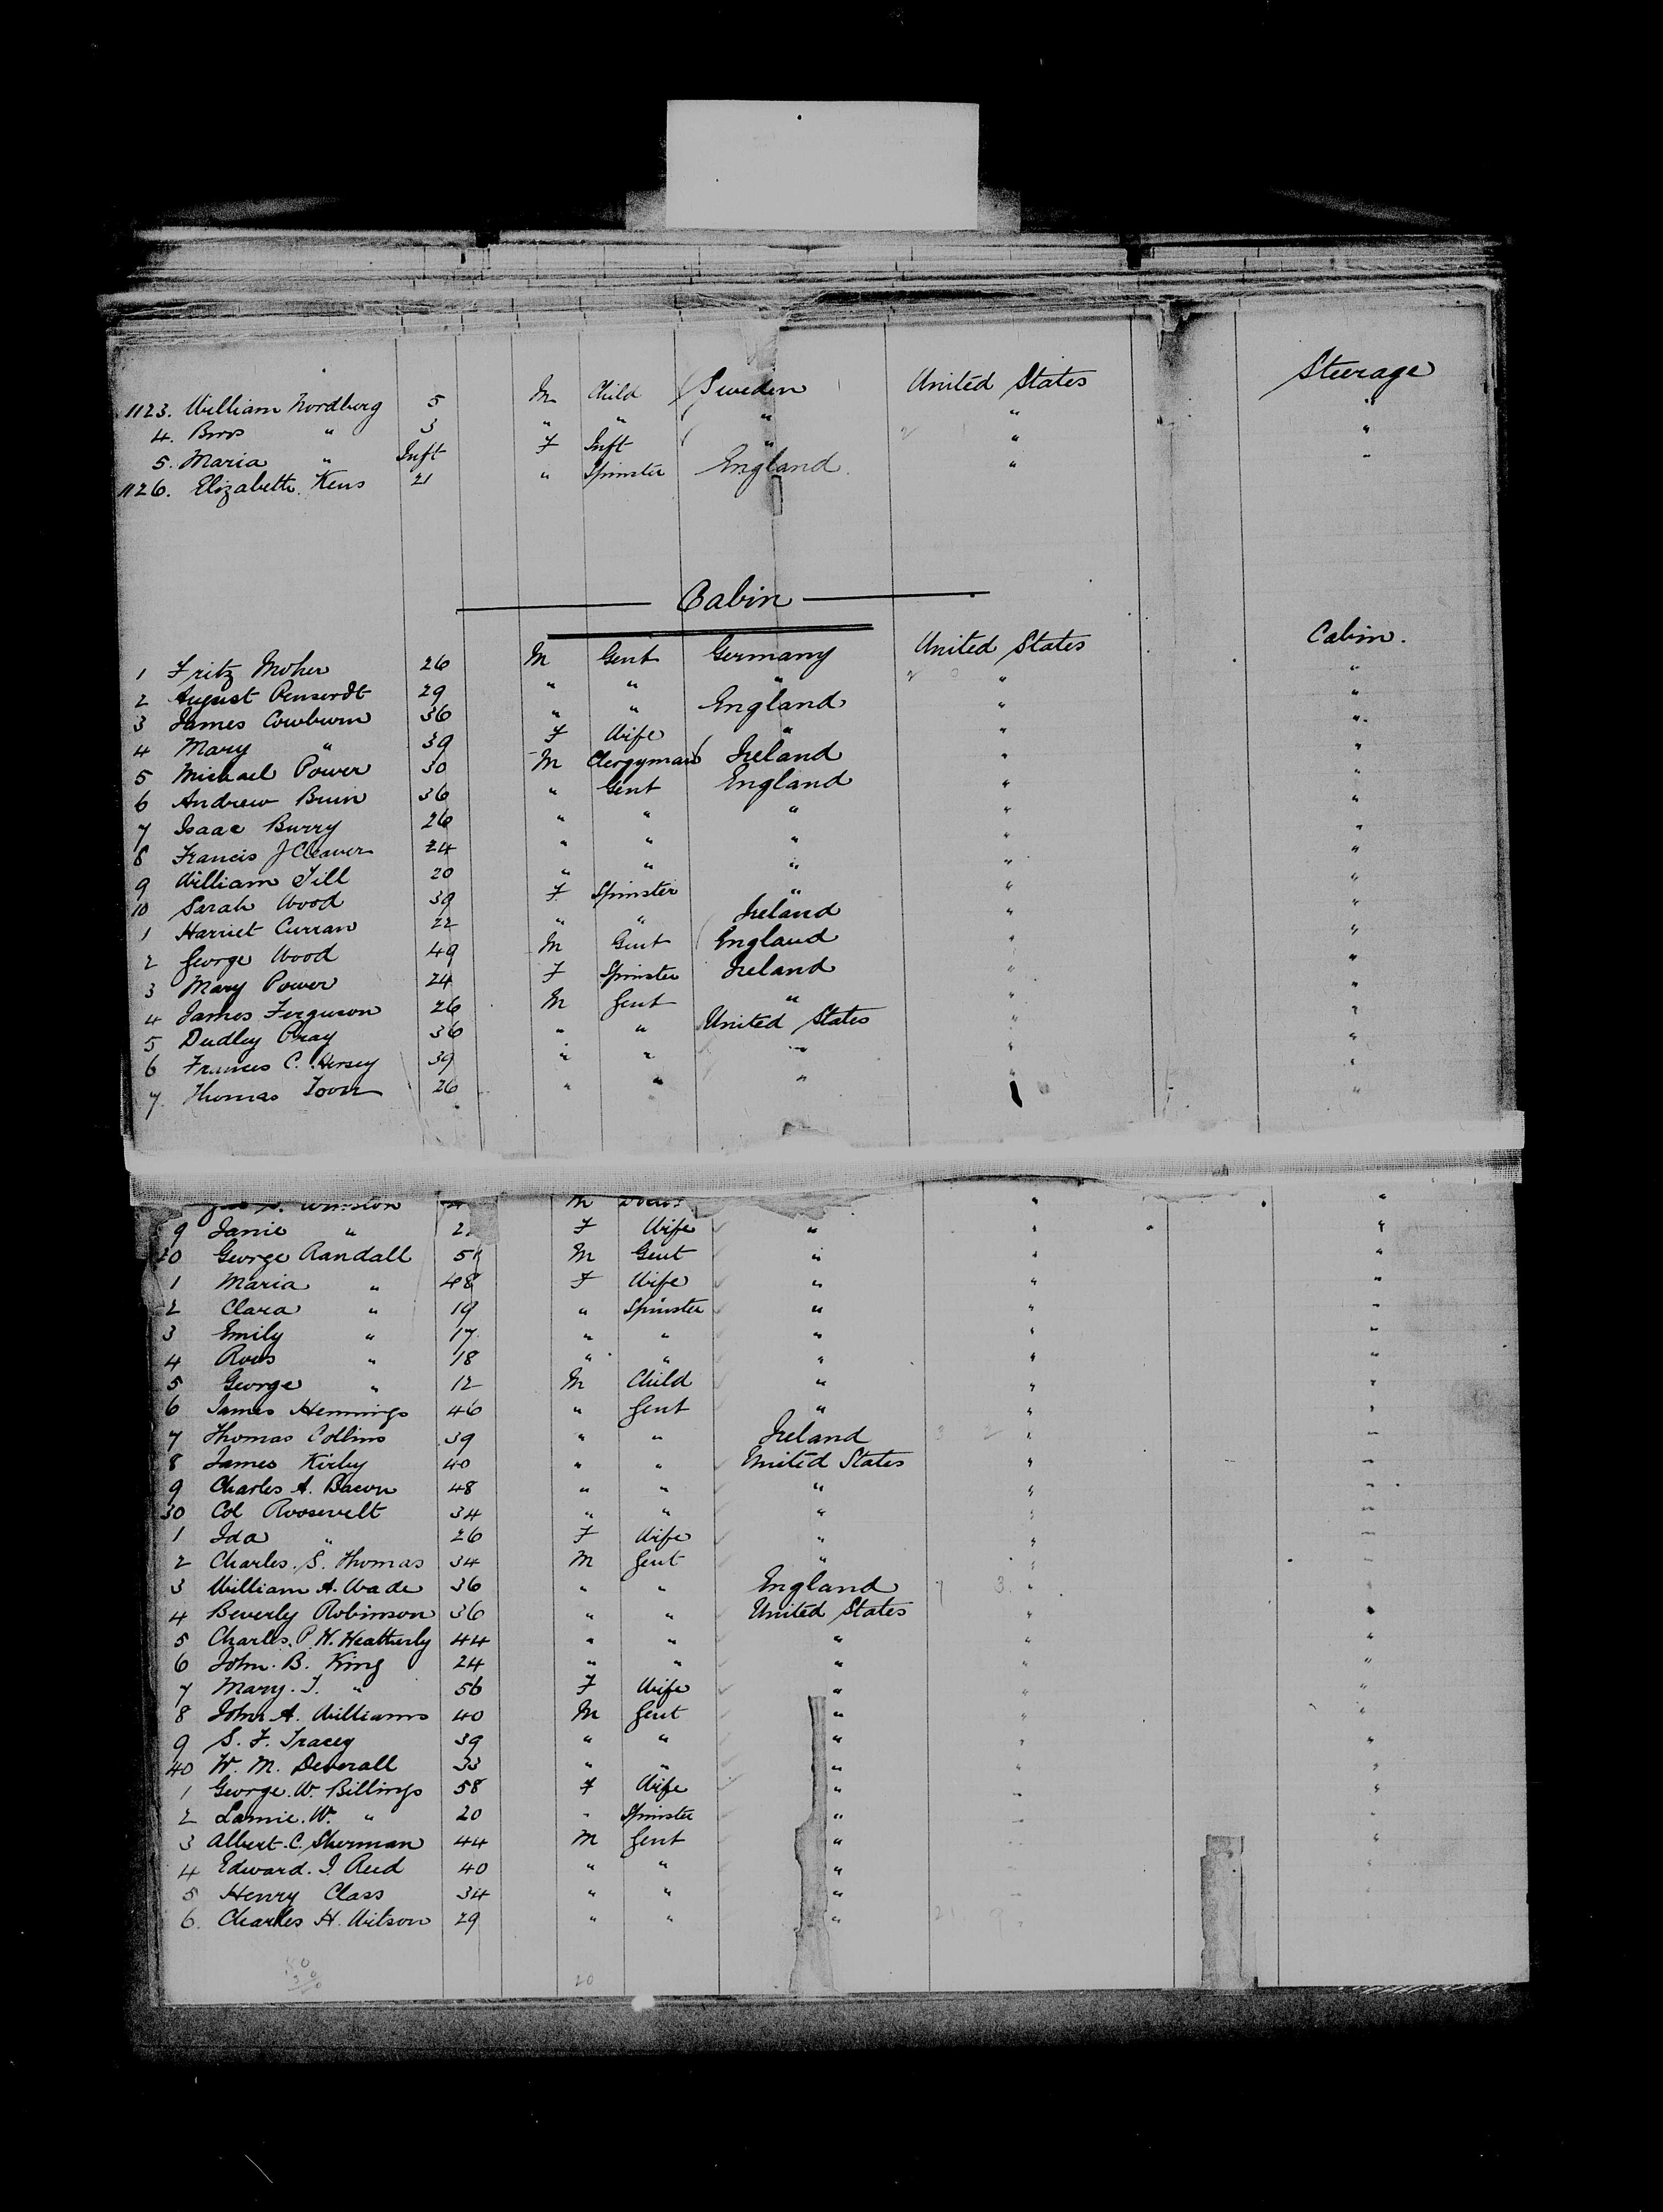 1123. William Nordberg 5 M Child Sweden United States Steerage
4. " 3 " " " " "
5. Maria " Inft F Inft " " "
1126. Elizabeth Kens 21 " Spinster England " "
Cabin
1 Fritz Moher 26 M Gent Germany United States Cabin.
2 August 29 " " " " "
3 James Cowburn 36 " " England " "
4 Mary " 39 F Wife " " "
5 Michael Power 30 M Clergyman Ireland " "
6 Andrew Brien 36 " Gent England " "
7 Isaac Burry 26 " " " " "
8 Francis J Cleaver 24 " " " " "
9 William Till 20 " " " " "
10 Sarah Wood 39 F Spinster " " "
1 Harriet Curran 22 " " Ireland " "
2 George Wood 49 M Gent England " "
3 Mary Power 24 F Spinster Ireland " "
4 James Ferguson 26 M Gent " " "
5 Dudley 36 " " United States " "
6 Frances C. Hersey 39 " " " " "
7 Thomas Toon 26 " " " "
Winston M " "
9 Janie " F Wife " " "
20 George Randall M Gent " " "
1 Maria " 48 F Wife " " "
2 Clara " 19 " Spinster " " "
3 Emily " 17 " " " " "
4 " 18 " " " " "
5 George " 12 M Child " " "
6 James Hennings 46 " Gent " " "
7 Thomas Collins 39 " " Ireland " "
8 James Kirby 40 " " United States " "
9 Charles A. Bacon 48 " " " " "
30 Col Roosevelt 34 " " " " "
1 Ida " 26 F Wife " " "
2 Charles. S. Thomas 34 M Gent " " "
3 William A. Wade 36 " " England " "
4 Beverly Robinson 36 " " United States " "
5 Charles. P. H. Heatherly 44 " " " " "
6 John. B. King 24 " " " " "
7 Mary. I. " 56 F Wife " " "
8 John A. Williams 40 M Gent " " "
9 S. F. Tracey 39 " " " " "
40 W. M. Deverall 33 " " " " "
1 George. W. Billings 58 F Wife " " "
2 W. " 20 " Spinster " " "
3 Albert. C. Sherman 44 M Gent " " "
4 Edward. I. Reed 40 " " " "
5 Henry Class 34 " " " "
6. Charles H. Wilson 29 " " "
20